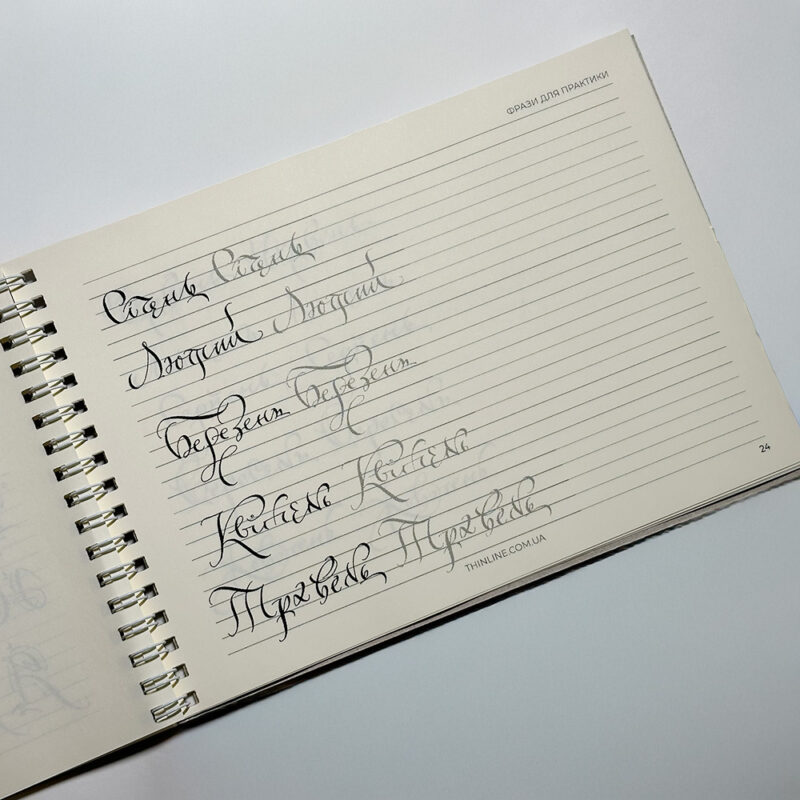 ФРАЗИ ДЛЯ ПРАКТИКИ
Січень Січень
Лютий Лютий
Березень Березень
Квітень Квітень
Травень Травень
THINLINE.COM.UA
24